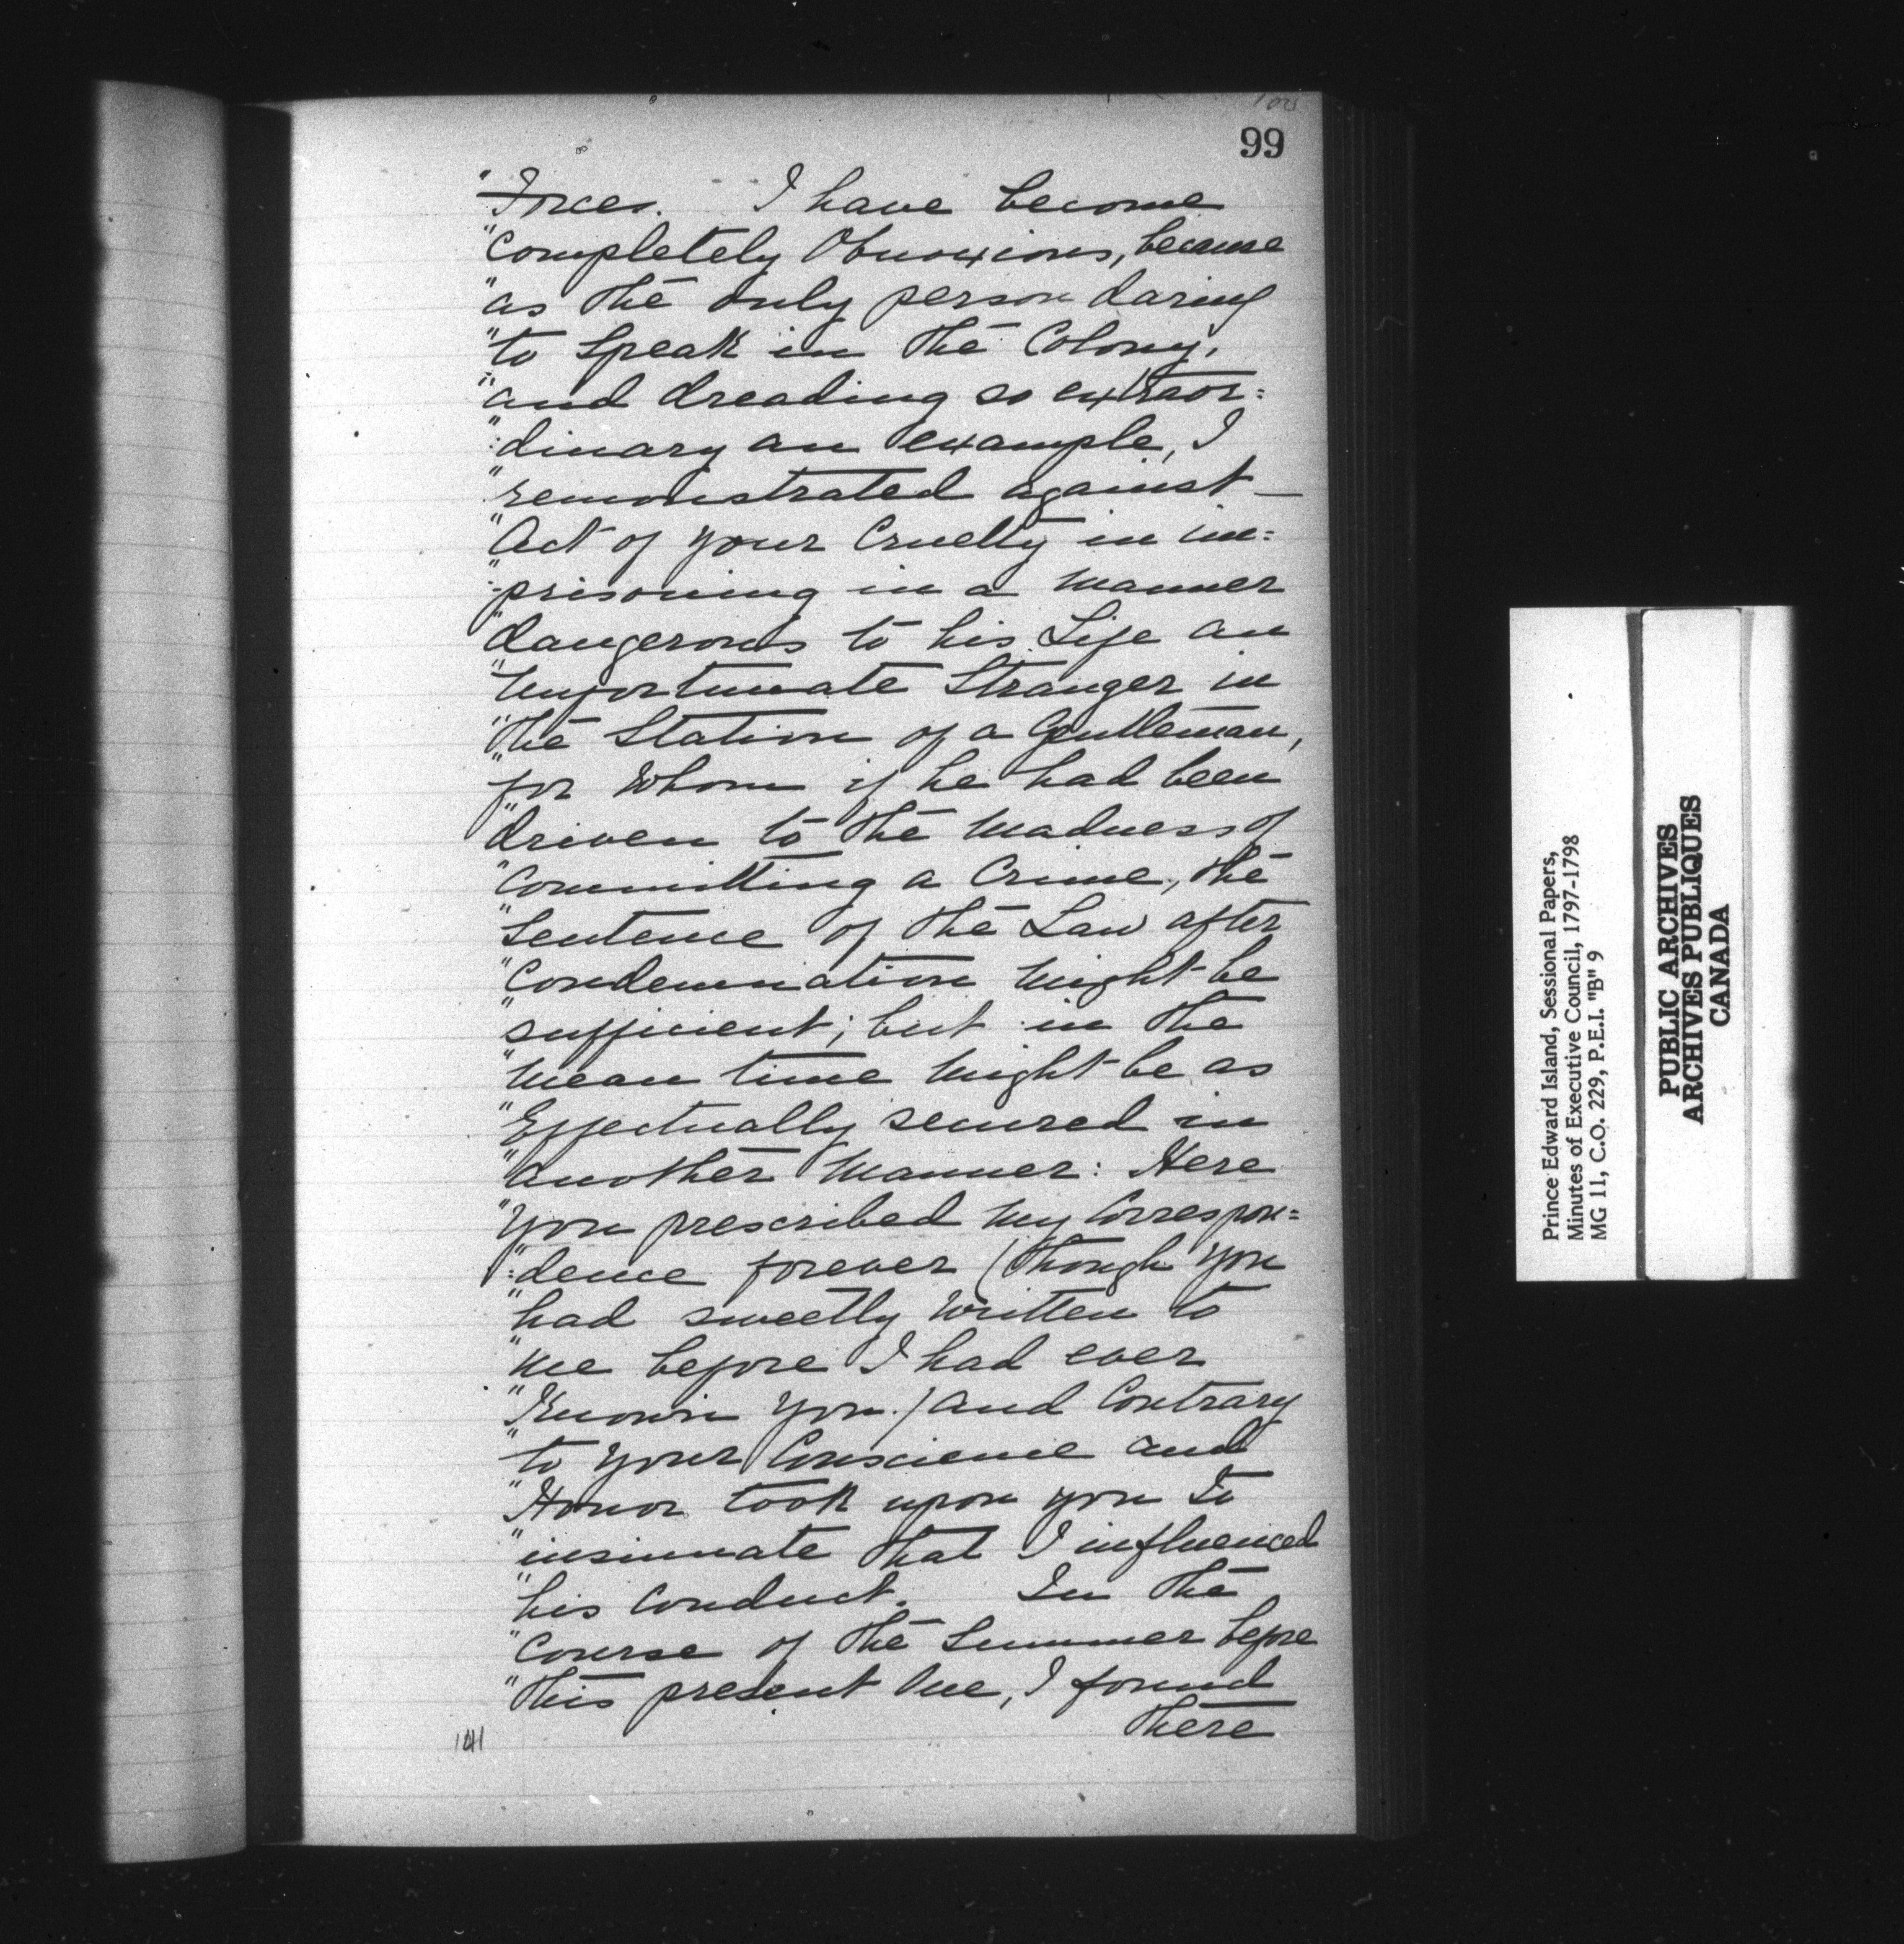 99
"Forces. I have become
"Completely Obnoxious, because
"as the only person daring
"to Speak in the Colony,
"and dreading so extraor=
":dinary an example, I
"remonstrated against —
"Act of your Cruelty in im=
":prisoning in a Manner
"dangerous to his Life an
"Unfortunate Stranger in
"the Station of a Gentleman,
"for Whom if he had been
"driven to the Madness of
"Committing a Crime, the
"Sentence of the Law after
"Condemnation Might be
"sufficient; but in the
"Mean time Might be as
"Effectually secured in
"another Manner: Here
"you prescribed My Correspon=
":dence forever (though you
"had sweetly Written to
"Me before I had ever
"Known you.) and Contrary
"to your Conscience and
"Honor took upon you to
"insinuate that I influenced
"his Conduct. In the
"Course of the Summer before
"this present One, I found
there
Prince Edward Island, Sessional Papers,
Minutes of Executive Council, 1797-1798
MG 11, C.O. 229, P.E.I. "B" 9
PUBLIC ARCHIVES
ARCHIVES PUBLIQUES
CANADA